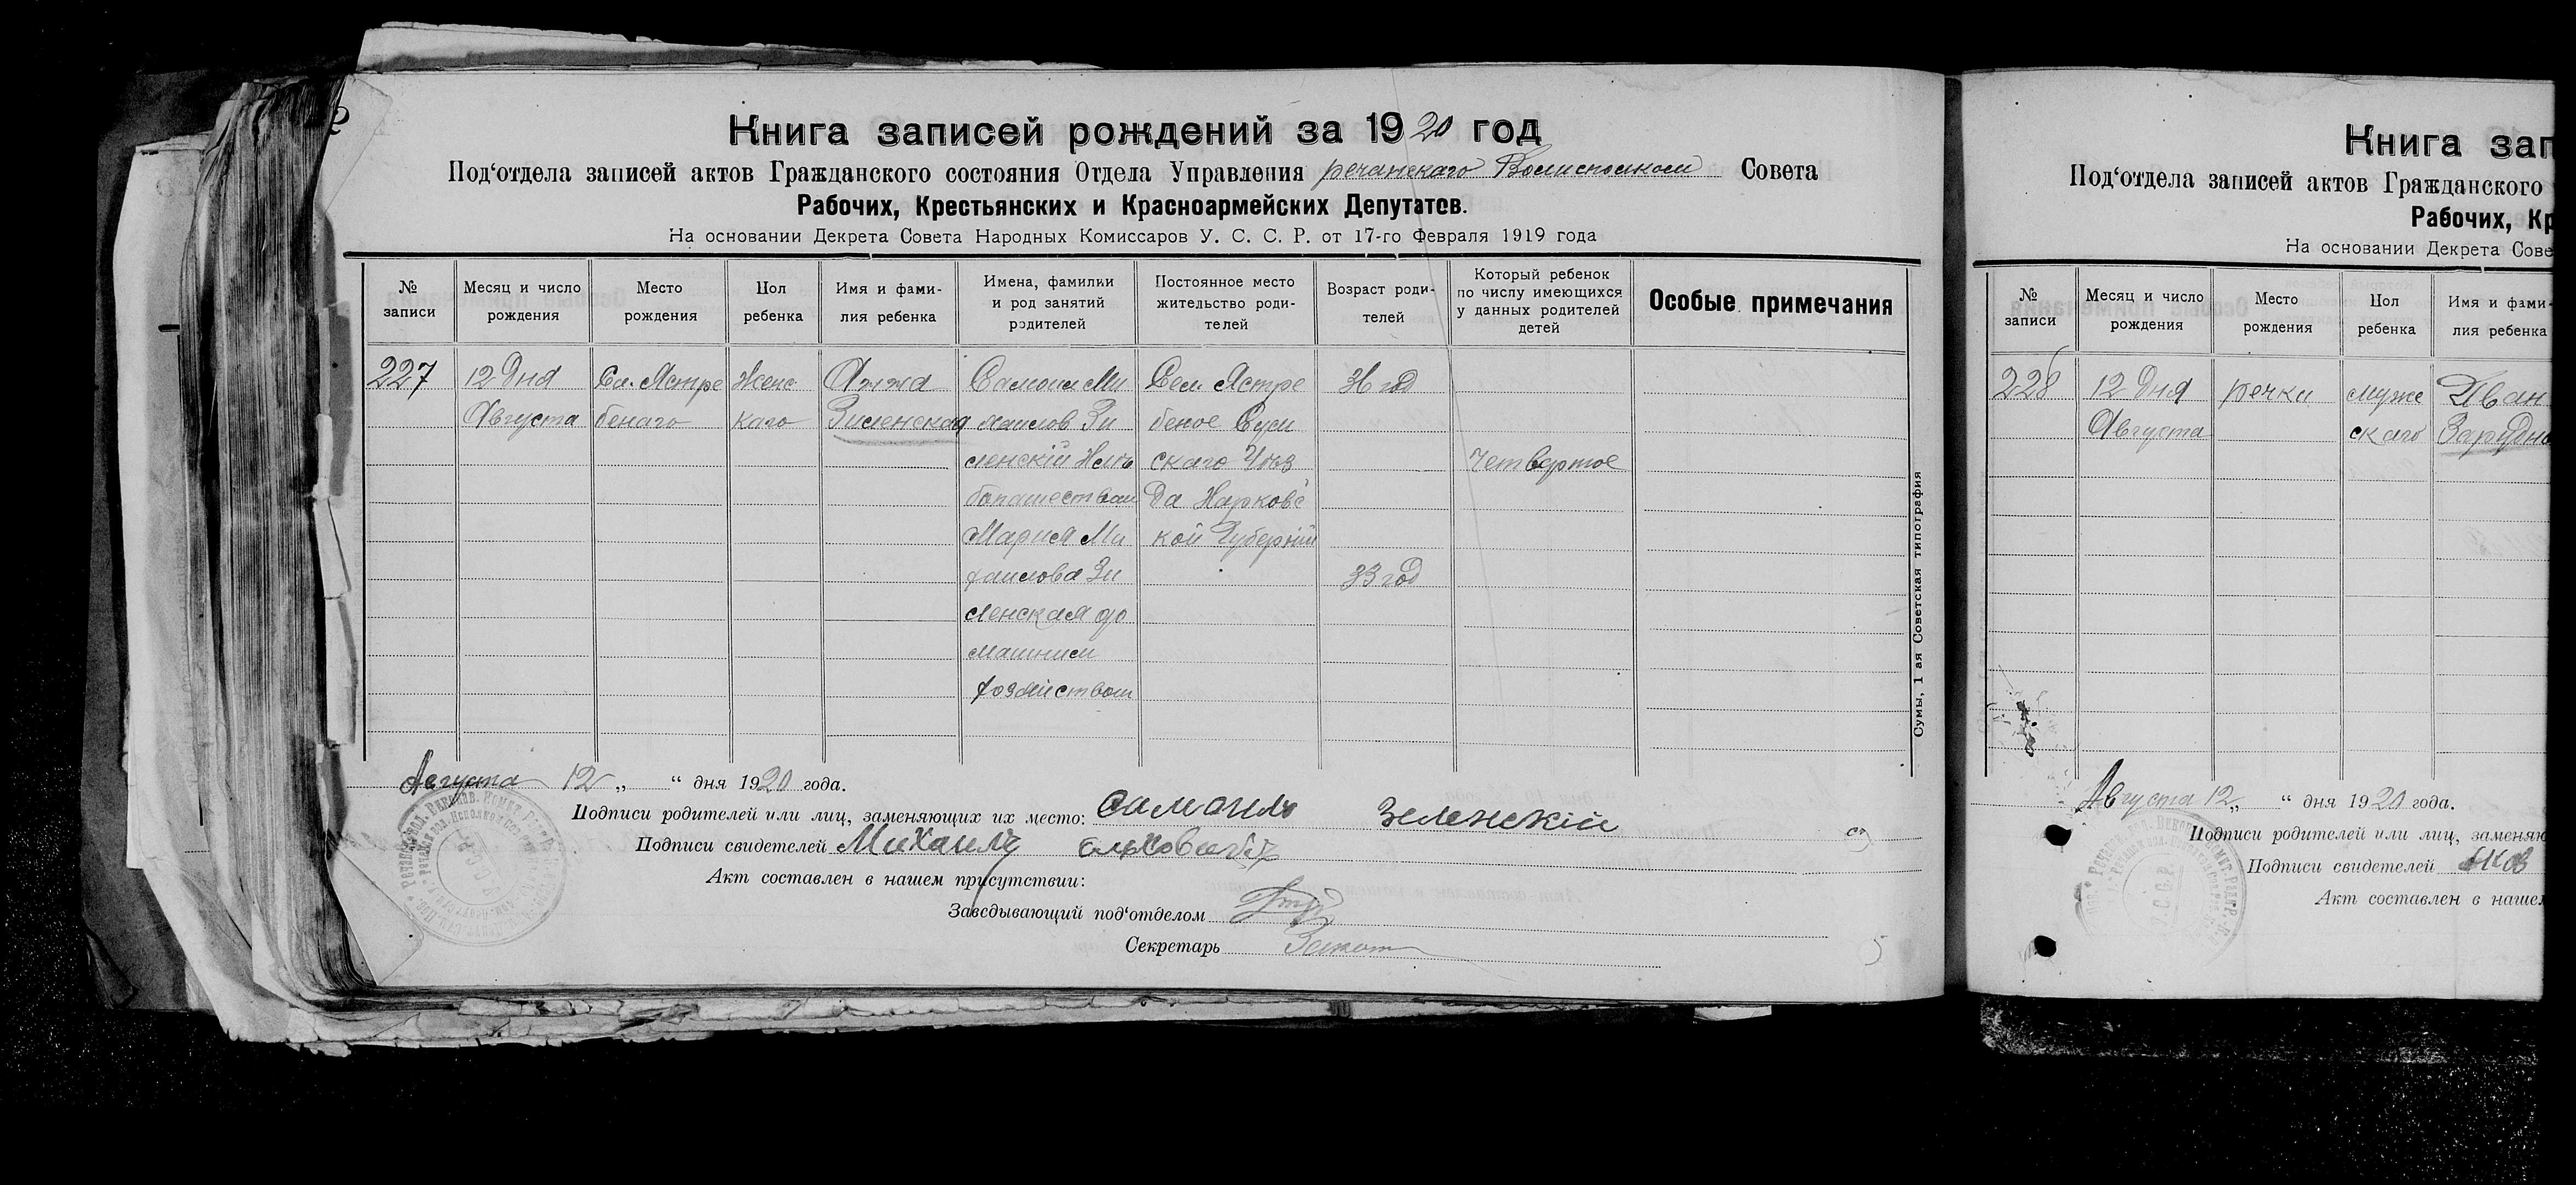 Книга записей рождений за 1920 год
Под‘отдела записей актов Гражданского состояния Отдела Управления речанскаго Волисполком Совета
Рабочих, Крестьянских и Красноармейских Депутатов.
На основании Декрета Совета Народных Комиссаров У. С. С. Р. от 17-го Февраля 1919 года
№ записи
Месяц и число рождения
Место рождения
Пол ребенка
Имя и фамилия ребенка
Имена, фамилии и род занятий родителей
Постоянное место жительство родителей
Возраст родителей
Который ребенок по числу имеющихся у данных родителей детей
Особые примечания
227
12 Дня
Августа
Сл. Ястре
бенаго
Женс
каго
Анна
Зиленская
Самоил Ми
хаилов Зи
ленскій Хлѣ
бопашеством
Мария Ми
хаилова Зи
ленская до
машнем
хозяйством
Сел Ястре
беное Сум
скаго Уѣз
да Харковс
кой Губерніи
36 год
33 год
Четвертое
Сумы, 1 ая Советская типография
Августа 12 „ “ дня 1920 года.
Подписи родителей или лиц, заменяющих их место: Самоилъ Зеленскій
Подписи свидетелей Михаилъ
Акт составлен в нашем присутствии:
Заведывающий под‘отделом
Секретарь
Книга зап
Под‘отдела записей актов Гражданского
Рабочих, Кр
На основании Декрета Сове
№ записи
Месяц и число рождения
Место рождения
Пол ребенка
Имя и фами-
лия ребенка
228
12 Дня
Августа
речки
муже
скаго
Иван
Зарудно
Августа 12 „ “ дня 1920 года.
Подписи родителей или лиц, заменяю
Подписи свидетелей
Акт составлен в нашем